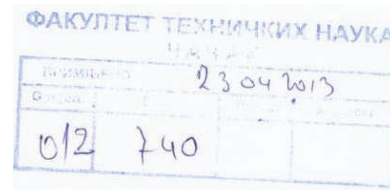 ФАКУЛТЕТ ТЕХНИЧКИХ НАУКА
ЧАЧАК
ПРИМЉЕНО 23 04 2013
012 740